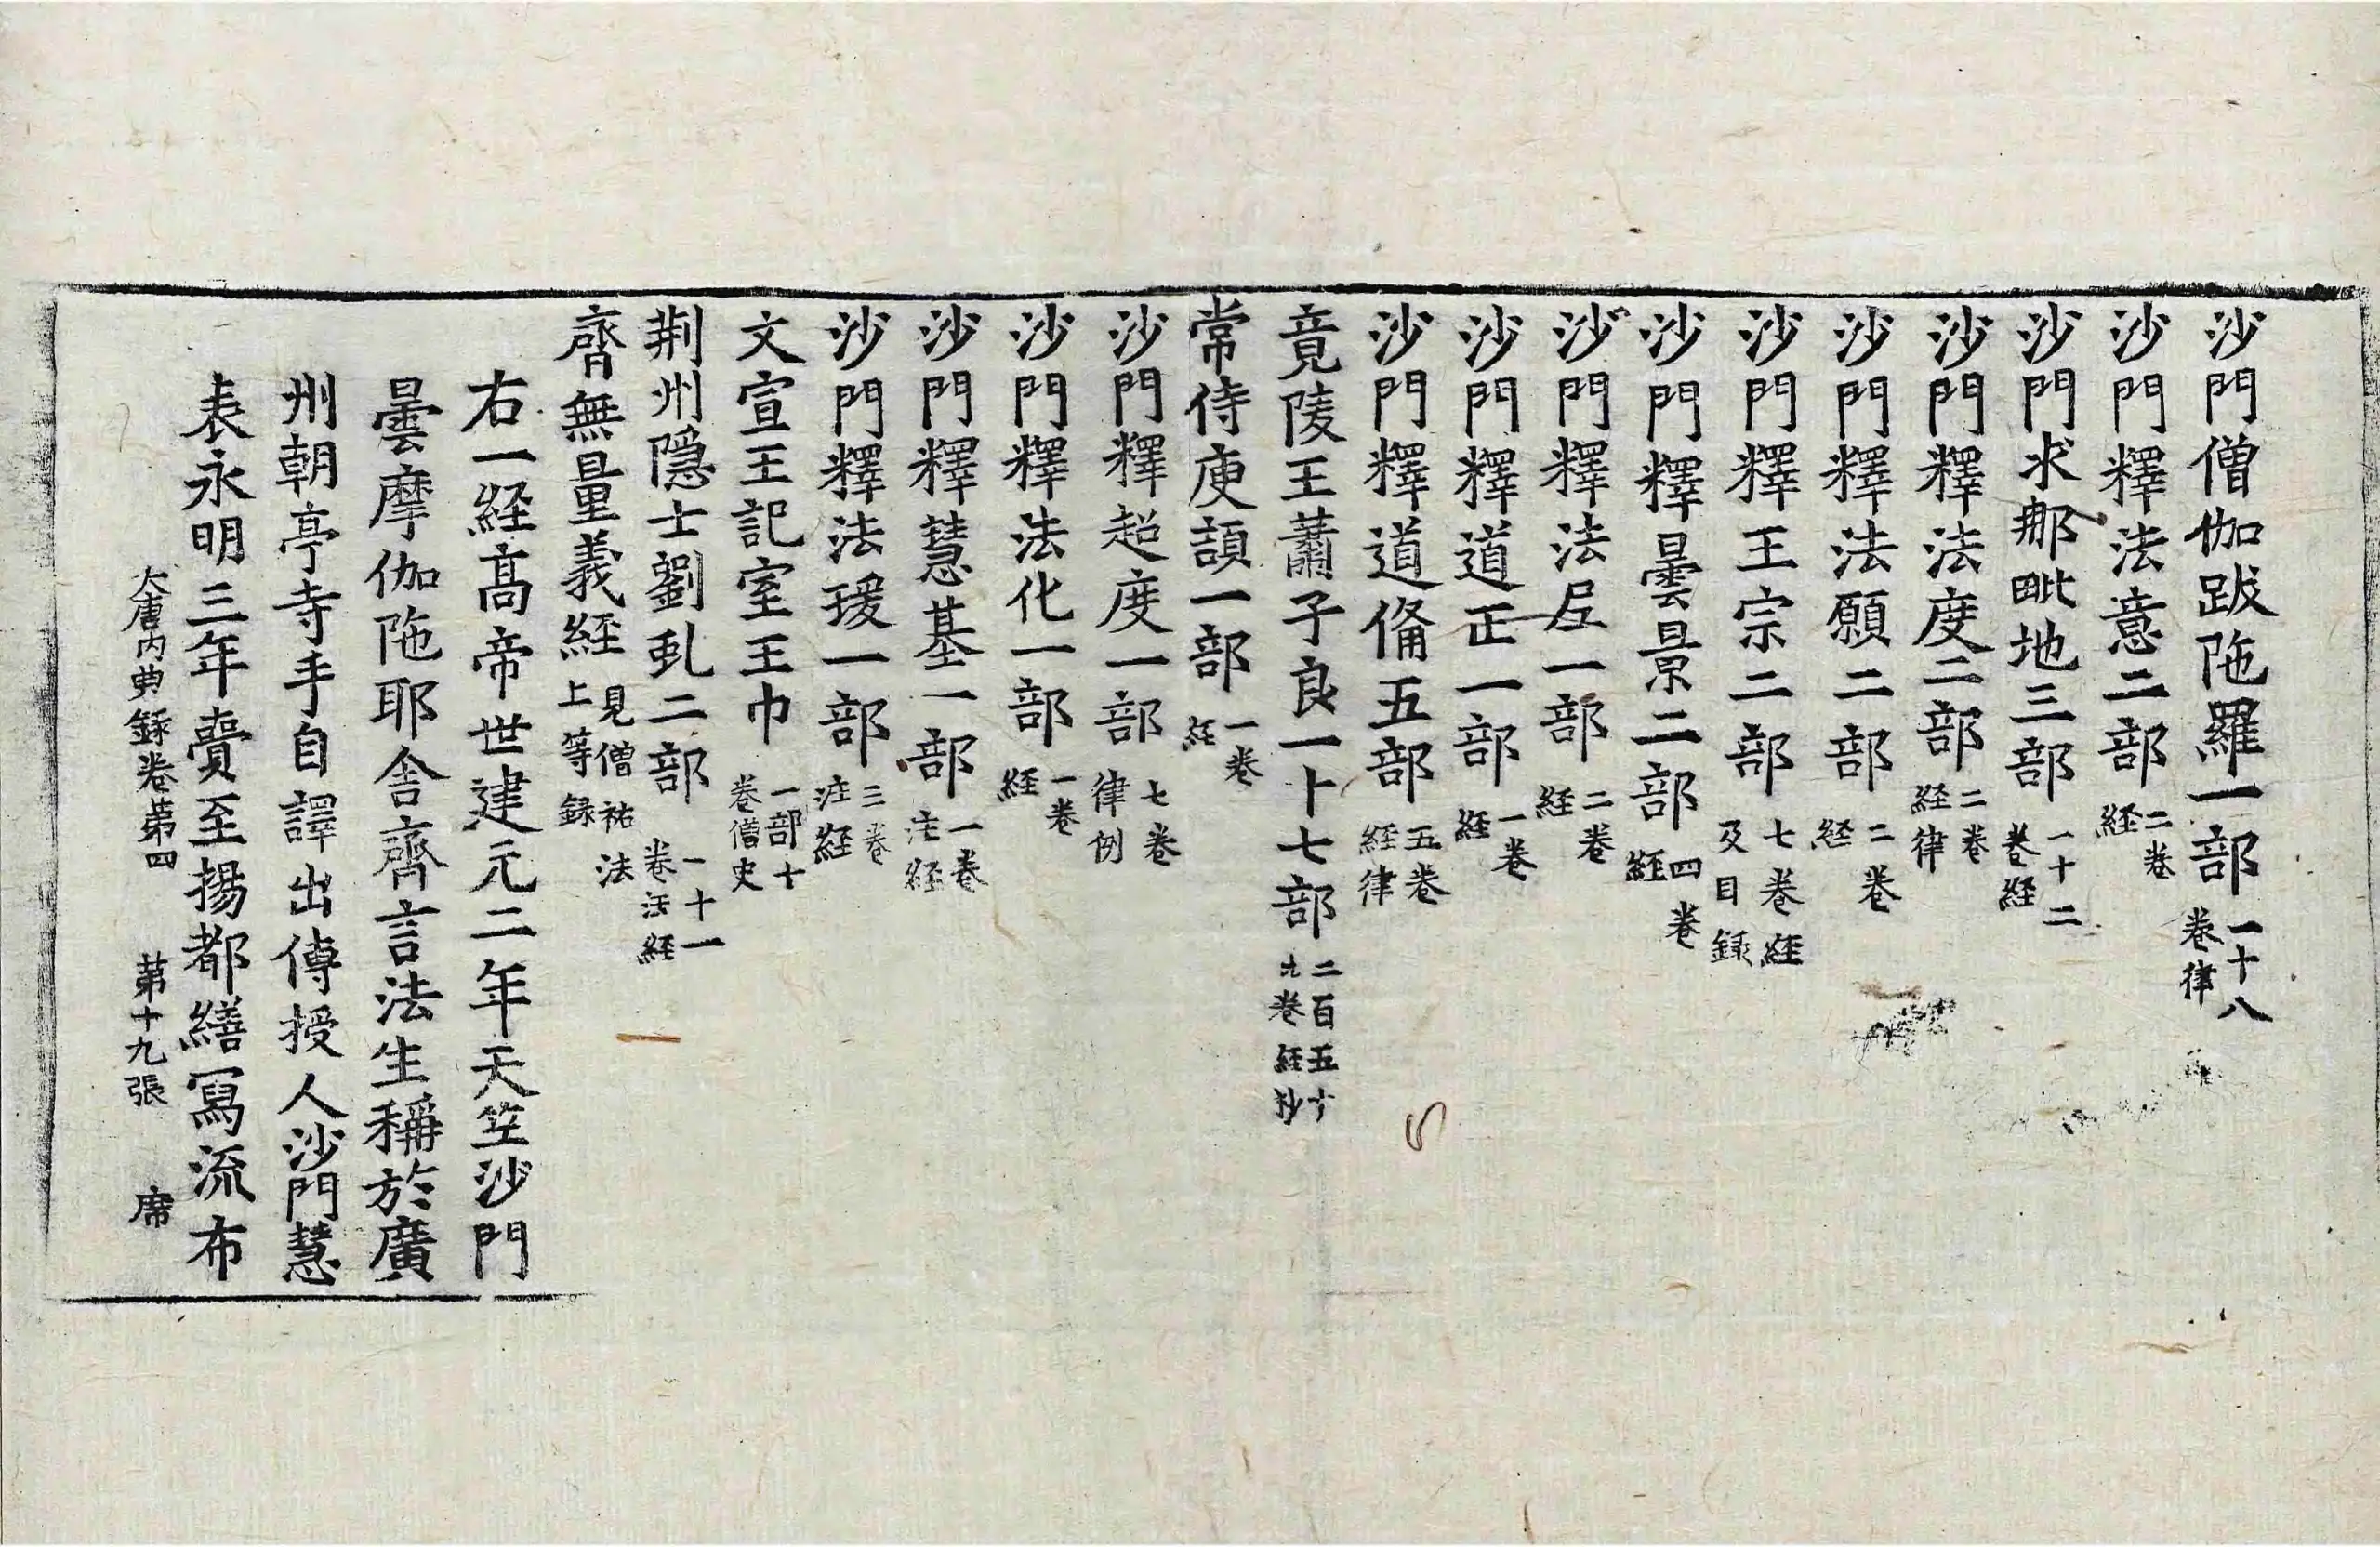 沙門僧伽跋陁羅一部一十八卷律
沙門釋法意二部二卷経
沙門求那毗地三部一十二卷経
沙門釋法度二部二卷経律
沙門釋法願二部二卷経
沙門釋王宗二部七卷経及目録
沙門釋曇景二部四卷経
沙門釋法𡰱一部二卷経
沙門釋道正一部一卷経
沙門釋道俻五部五卷経律
竟陵王蕭子良一十七部二百五十九卷経抄
常侍庾頡一部一卷経
沙門釋超度一部七卷律例
沙門釋法化一部一卷経
沙門釋慧基一部一卷注経
沙門釋法瑗一部三卷注経
文宣王記室王巾一部十卷僧史
荆州隠士劉虬二部一十一卷注経
齊無量義経見僧祐法上等録
右一経髙帝世建元二年天竺沙門
曇摩伽陁耶舎齊言法生稱於廣
州朝亭寺手自譯出傳授人沙門慧
表永明三年賷至揚都繕冩流布
大唐内典録卷第四 第十九張 席